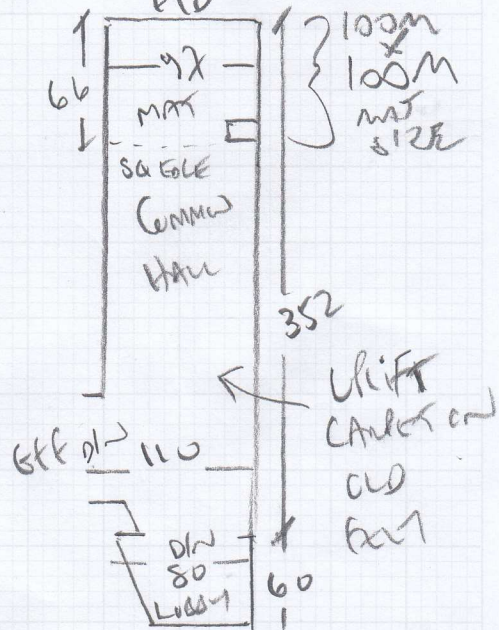 97
66
MAT
SQ EDGE
COMMON
HALL
100M
X
100M
MAT
SIZE
352
UPLIFT
CARPET ON
OLD
FELT
EFF DIN 110
DIN
80
LOBBY
60